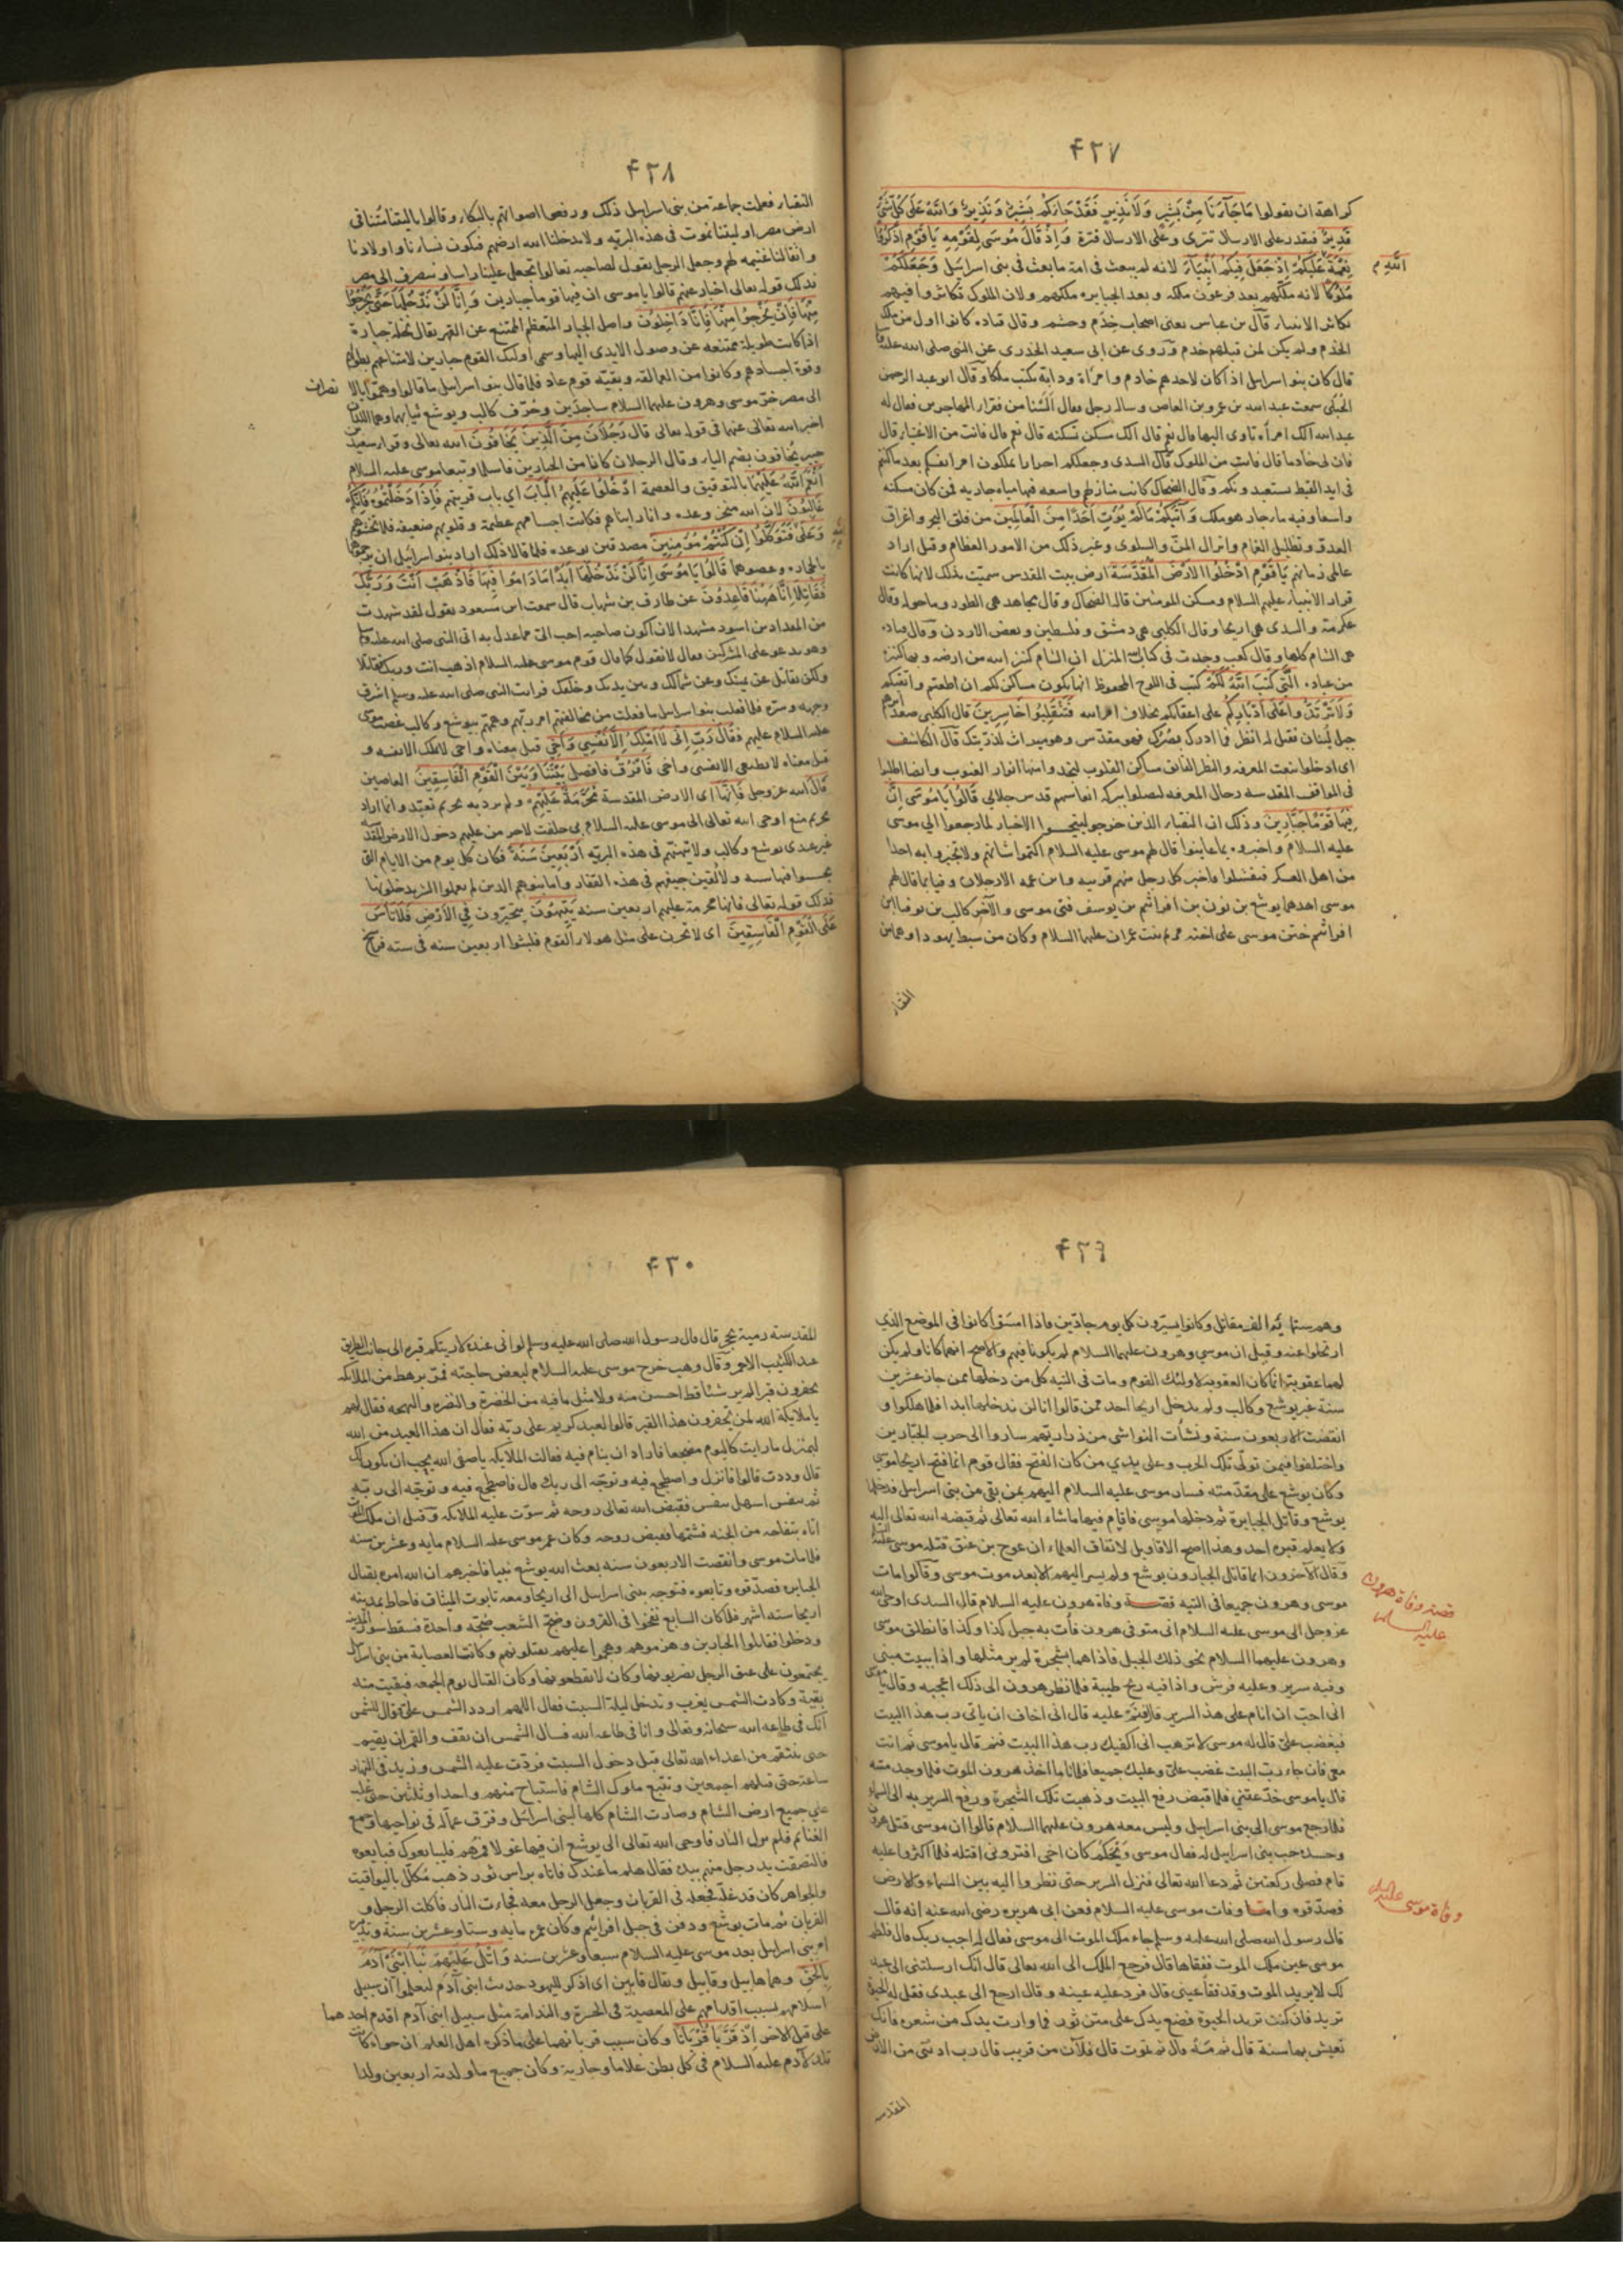 ٤٢٧
كراهة ان تقولوا مَا جَآءَنَا مِنْ بَشِيرٍ وَلَا نَذِيرٍ فَقَدْ جَاءَكُمْ بَشِيرٌ وَنَذِيرٌ وَاللهُ عَلَى كُلِّ شَيْ
قَدِيرٌ فيقدر على الارسال تترى وعلى الارسال فترة وَاِذْ قَالَ مُوسَى لِقَوْمِهِ يَا قَوْمِ اذْكُرُوا
نِعْمَةَ عَلَيْكُمْ اِذْ جَعَلَ فِيكُمْ اَنْبِيَآءَ لانه لم يبعث فى امة ما بعث فى بنى اسرائيل وَجَعَلَكُمْ
اللهِ م
مُلُوكًا لانه ملكهم بعد فرعون ملكه وبعد الجبابره ملكهم ولان الملوك تكاثروا فيهم
تكاثر الانبياء قال بن عباس يعنى اصحاب خدم وحشم وقال قتاده كانوا اول من ملك
الخدم ولم يكن لمن قبلهم خدم وروى عن ابى سعيد الخدرى عن النبى صلى الله عليه
قال كان بنو اسرائيل اذا كان لاحدهم خادم وامرأة ودابة يكتب ملكا وقال ابو عبد الرحمن
الحبلى سمعت عبد الله بن عمرو بن العاص وساله رجل فقال السنا من فقراء المهاجرين فقال له
عبد الله الك امرأه تاوى اليها قال نعم قال الك مسكن تسكنه قال نعم قال فانت من الاغنيا قال
فان لى خادما قال فانت من الملوك قال السدى وجعلكم احرارا تملكون امر انفسكم بعد ما كنتم
فى ايد القبط يستعبدونكم وقال الضحاك كانت منازلهم واسعه فيها مياه جاريه فمن كان مسكنه
واسعا وفيه ماء جار هو ملك وَآتَيكُمْ مَا لَمْ يُؤْتِ اَحَدًا مِنَ الْعَالَمِينَ من فلق البحر واغراق
العدو وتظليل الغمام وانزال المن والسلوى وغير ذلك من الامور العظام وقيل اراد
عالمى زمانهم يَا قَوْمِ ادْخُلُوا الاَرْضَ الْمُقَدَّسَةَ ارض بيت المقدس سميت بذلك لانها كانت
قرار الانبياء عليهم السلام ومسكن المومنين قاله الضحاك وقال مجاهد هى الطور وما حوله وقال
عكرمة والسدى هى اريحا وقال الكلبى هى دمشق وفلسطين وبعض الاردن وقال قتاده
هى الشام كلها وقال كعب وجدت فى كتاب الله المنزل ان الشام كنز الله من ارضه وبها كنزه
من عباده الَّتِى كَتَبَ اللهُ لَكُمْ كتب فى اللوح المحفوظ انها تكون مساكن لكم ان اطعتم وآمنتم
وَلَا تَرْتَدُّوا عَلَى اَدْبَارِكُمْ على اعقابكم بخلاف امر الله فَتَنْقَلِبُوا خَاسِرِينَ قال الكلبى صعد
جبل لبنان فقيل له انظر فما ادرك بصرك فهو مقدس وهو ميراث لذريتك قال الكاشف
فى المواقف المقدسه رجال المعرفه ليصلوا ببركه انفاسهم قدس جلالى قَالُوا يَا مُوسَى اِنَّ
فِيهَا قَوْمًا جَبَّارِينَ وذلك ان النقباء الذين خرجوا الاخبار لما رجعوا الى موسى
عليه السلام واخبروه بما عاينوا قال لهم موسى عليه السلام اكتموا شانهم ولا تخبروا به احدا
من اهل العسكر فيفشلوا فاخبر كل رجل منهم قريبه وابن عمه الا رجلان وفيا بما قال لهم
موسى احدهما يوشع بن نون بن افرائيم بن يوسف فتى موسى والآخر كالب بن يوفنا
افرائيم ختن موسى على اخته مريم بنت عمران عليهما السلام وكان من سبط يهودا وهما من
النقبا
٤٢٨
النقباء فعلت جماعة من بنى اسرائيل ذلك ورفعوا اصواتهم بالبكاء وقالوا يا ليتنا متنا فى
ارض مصر او ليتنا نموت فى هذه البريه ولا يدخلنا الله ارضهم فيكون نساؤنا واولادنا
واثقالنا غنيمه لهم وجعل الرجل يقول لصاحبه تعالوا نجعل علينا راسا وننصرف الى مصر
فذلك قوله تعالى اخبارا عنهم قالوا يا موسى ان فيها قوما جبارين وَاِنَّا لَنْ نَدْخُلَهَا حَتَّى يَخْرُجُوا
مِنْهَا فَاِنْ يَخْرُجُوا مِنْهَا فَاِنَّا دَاخِلُونَ واصل الجبار المتعظم الممتنع عن القهر يقال نخلة جبارة
اذا كانت طويلة ممتنعه عن وصول الايدى اليها وسمى اولئك القوم جبارين لامتناعهم بطولهم
وقوة اجسادهم وكانوا من العمالقه وبقيه قوم عاد فلما قال بنو اسرائيل ما قالوا وهموا بالا
نصراف
الى مصر خر موسى وهرون عليهما السلام ساجدين وخرق كالب ويوشع ثيابهما وهما اللذان
اخبر الله تعالى عنهما فى قوله تعالى قَالَ رَجُلَانِ مِنَ الَّذِينَ يَخَافُونَ الله تعالى وقرا سعيد بن
جبير يُخافون بضم الياء وقال الرجلان كانا من الجبارين فاسلما وتبعا موسى عليه السلام
اَنْعَمَ اللهُ عَلَيْهِمَا بالتوفيق والعصمة ادْخُلُوا عَلَيْهِمُ الْبَابَ اى باب قريتهم فَاِذَا دَخَلْتُمُوهُ فَاِنَّكُمْ
غَالِبُونَ لان الله منجز وعده وانا رايناهم فكانت اجسامهم عظيمة وقلوبهم ضعيفه فلا تخشوهم
وَعَلَى فَتَوَكَّلُوا اِنْ كُنْتُمْ مُؤْمِنِينَ مصدقين بوعده فلما قالا ذلك اراد بنو اسرائيل ان يرجموهما
الله
بالحجاره وعصوهما قَالُوا يَا مُوسَى اِنَّا لَنْ نَدْخُلَهَا اَبَدًا مَا دَامُوا فِيهَا فَاذْهَبْ اَنْتَ وَرَبُّكَ
فَقَاتِلَا اِنَّا هَهُنَا قَاعِدُونَ عن طارق بن شهاب قال سمعت ابن مسعود يقول لقد شهدت
من المقداد بن اسود مشهدا لان اكون صاحبه احب الى مما عدل به اتى النبى صلى الله عليه
وهو يدعو على المشركين فقال لا نقول كما قال قوم موسى عليه السلام اذهب انت وربك فقاتلا
ولكن نقاتل عن يمينك وعن شمالك وبين يديك وخلفك فرايت النبى صلى الله عليه وسلم اشرق
وجهه وسره فلما فعلت بنو اسرائيل ما فعلت من مخالفتهم امر ربهم وهمهم بيوشع وكالب غضب موسى
عليه السلام عليهم فَقَالَ رَبِّ اِنِّى لَا اَمْلِكُ اِلَّا نَفْسِى وَاَخِى قيل معناه واخى لا يملك الا نفسه و
قيل معناه لا يطيعنى الا نفسى واخى فَافْرُقْ فافصل بَيْنَنَا وَبَيْنَ الْقَوْمِ الْفَاسِقِينَ العاصين
قَالَ الله عز وجل فَاِنَّهَا اى الارض المقدسة مُحَرَّمَةٌ عَلَيْهِمْ ولم يرد به تحريم تعبد وانما اراد
تحريم منع اوحى الله تعالى الى موسى عليه السلام بى حلفت لاحرمن عليهم دخول الارض المقدسه
غير عبدى يوشع وكالب ولاتيهنهم فى هذه البريه اَرْبَعِينَ سَنَةً فكان كل يوم من الايام التى
فيها سنه ولالقين جيفهم فى هذه القفار واما بنوهم الذين لم يعملوا الشر يدخلونها
فذلك قوله تعالى فانها محرمة عليهم اربعين سنه يَتِيهُونَ يتحيرون فِى الْاَرْضِ فَلَا تَأْسَ
عَلَى الْقَوْمِ الْفَاسِقِينَ اى لا تحزن على مثل هولاء القوم فلبثوا اربعين سنه فى سته فراسخ
٤٢٩
وهم ستمائة الف مقاتل وكانوا يسيرون كل يوم جادين فاذا امسوا كانوا فى الموضع الذي
ارتحلوا عنه وقيل ان موسى وهرون عليهما السلام لم يكونا فيهم والاصح انهما كانا ولم يكن
لهما عقوبة وانما كان العقوبة لاولئك القوم ومات فى التيه كل من دخلها ممن جاز عشرين
سنة غير يوشع وكالب ولم يدخل اريحا احد ممن قالوا انا لن ندخلها ابدا فلما هلكوا و
انقضت الاربعون سنة ونشأت النواشى من ذراريهم ساروا الى حرب الجبارين
واختلفوا فيمن تولى تلك الحرب وعلى يدي من كان الفتح فقال قوم انما فتح اريحا موسى
وكان يوشع على مقدمته فسار موسى عليه السلام اليهم بمن بقى من بنى اسرائيل فدخلها
يوشع وقاتل الجبابرة ثم دخلها موسى فاقام فيها ما شاء الله تعالى ثم قبضه الله تعالى اليه
ولا يعلم قبره احد وهذا اصح الاقاويل لاتفاق العلماء ان عوج بن عنق قتله موسى
وقال الآخرون انما قاتل الجبارون يوشع ولم يسر اليهم الا بعد موت موسى وقالوا مات
موسى وهرون جميعا فى التيه قصة وفاة هرون عليه السلام قال السدى اوحى الله
قصة وفاة هرون
عليه السلام
عز وجل الى موسى عليه السلام انى متوفى هرون فأت به جبل كذا وكذا فانطلق موسى
وهرون عليهما السلام نحو ذلك الجبل فاذا هما بشجرة لم ير مثلها واذا ببيت مبنى
وفيه سرير وعليه فرش واذا فيه ريح طيبة فلما نظر هرون الى ذلك اعجبه وقال يا موسى
انى احب ان انام على هذا السرير قال فنم عليه قال انى اخاف ان ياتى رب هذا البيت
فيغضب على قال له موسى لا ترهب انى اكفيك رب هذا البيت فنم قال يا موسى نم انت
معى فان جاء رب البيت غضب على وعليك جميعا فلما ناما اخذ هرون الموت فلما وجد مسه
قال يا موسى خدعتنى فلما قبض رفع البيت وذهبت تلك الشجرة ورفع السرير به الى السماء
فلما رجع موسى الى بنى اسرائيل وليس معه هرون عليهما السلام قالوا ان موسى قتل هرون
وحسده حب بنى اسرائيل له فقال موسى وَيْحَكُمْ كان اخى افترونى اقتله فلما اكثروا عليه
قام فصلى ركعتين ثم دعا الله تعالى فنزل السرير حتى نظروا اليه بين السماء والارض
فصدقوه واما وفات موسى عليه السلام فعن ابى هريره رضى الله عنه انه قال
وفاة موسى عليه السلام
قال رسول الله صلى الله عليه وسلم جاء ملك الموت الى موسى فقال له اجب ربك قال فلطم
موسى عين ملك الموت ففقاها قال فرجع الملك الى الله تعالى قال انك ارسلتنى الى عبد
لك لا يريد الموت وقد فقأ عينى قال فرد عليه عينه وقال ارجع الى عبدى فقل له الحيوة
تريد فان كنت تريد الحيوة فضع يدك على متن ثور فما وارت يدك من شعره فانك
تعيش بها سنة قال ثم مه قال ثم تموت قال فالآن من قريب قال رب ادننى من الارض
المقدسه
٤٣٠
المقدسة رمية بحجر قال قال رسول الله صلى الله عليه وسلم لو انى عنده لاريتكم قبره الى جانب الطريق
عند الكثيب الاحمر وقال وهب خرج موسى عليه السلام لبعض حاجته فمر برهط من الملائكه
يحفرون قبرا لم ير شيئا قط احسن منه ولا مثل ما فيه من الخضرة والنضره والبهجه فقال لهم
يا ملائكة الله لمن تحفرون هذا القبر قالوا لعبد كريم على ربه فقال ان هذا العبد من الله
لبمنزل ما رايت كاليوم مضجعا فاراد ان ينام فيه فقالت الملائكه يا صفى الله يحب ان يكون لك
قال وددت قالوا فانزل واضطجع فيه وتوجه الى ربك قال فاضطجع فيه وتوجه الى ربه
ثم تنفس اسهل تنفس فقبض الله تعالى روحه ثم سوت عليه الملائكه وقيل ان ملك الموت
اتاه بتفاحه من الجنه فشمها فقبض روحه وكان عمر موسى عليه السلام مايه وعشرين سنه
فلما مات موسى وانقضت الاربعون سنه بعث الله يوشع نبيا فاخبرهم ان الله امره بقتال
الجبابره فصدقوه وتابعوه فتوجه ببنى اسرائيل الى اريحا ومعه تابوت الميثاق فاحاط بمدينه
اريحا سته اشهر فلما كان السابع نفخوا فى القرون وضج الشعب ضجة واحدة فسقط سور المدينه
ودخلوا فقاتلوا الجبارين وهزموهم وهجموا عليهم يقتلونهم وكانت العصابة من بنى اسرائيل
يجتمعون على عنق الرجل يضربونها وكان لا يقطعونها وكان القتال يوم الجمعه فبقيت منه
بقية وكادت الشمس يغرب وتدخل ليلة السبت فقال اللهم اردد الشمس على وقال للشمس
انك فى طاعه الله سبحانه وتعالى وانا فى طاعه الله فسال الشمس ان تقف والقمر ان يقيم
حتى ننتقم من اعداء الله تعالى قبل دخول السبت فردت عليه الشمس وزيد فى النهار
ساعة حتى قتلهم اجمعين وتتبع ملوك الشام فاستباح منهم واحدا وثلثين حتى غلب
على جميع ارض الشام وصارت الشام كلها لبنى اسرائيل وفرق عماله فى نواحيها وجمع
الغنائم فلم تنزل النار فاوحى الله تعالى الى يوشع ان فيها غولا فمرهم فليبايعوك فبايعوه
فالتصقت يد رجل منهم بيده فقال هلم ما عندك فاتاه براس ثور ذهب مكلل باليواقيت
والجواهر كان قد غله فجعله فى القربان وجعل الرجل معه فجاءت النار فاكلت الرجل و
القربان ثم مات يوشع ودفن فى جبل افرائيم وكان عمره مايه وستا وعشرين سنة وتدبيره
امر بنى اسرائيل بعد موسى عليه السلام سبعا وعشرين سنه وَاتْلُ عَلَيْهِمْ نَبَأَ ابْنَيْ آدَمَ
بِالْحَقِّ وهما هابيل وقابيل ويقال قابين اى اذكر لليهود حديث ابنى آدم ليعلموا ان سبيل
اسلافهم بسبب اقدامهم على المعصية فى الحسرة والندامة مثل سبيل ابنى آدم اقدم احدهما
على قتل الاخر اِذْ قَرَّبَا قُرْبَانًا وكان سبب قربانهما على ما ذكره اهل العلم ان حواء كانت
تلد لآدم عليه السلام فى كل بطن غلاما وجارية وكان جميع ما ولدته اربعين ولدا